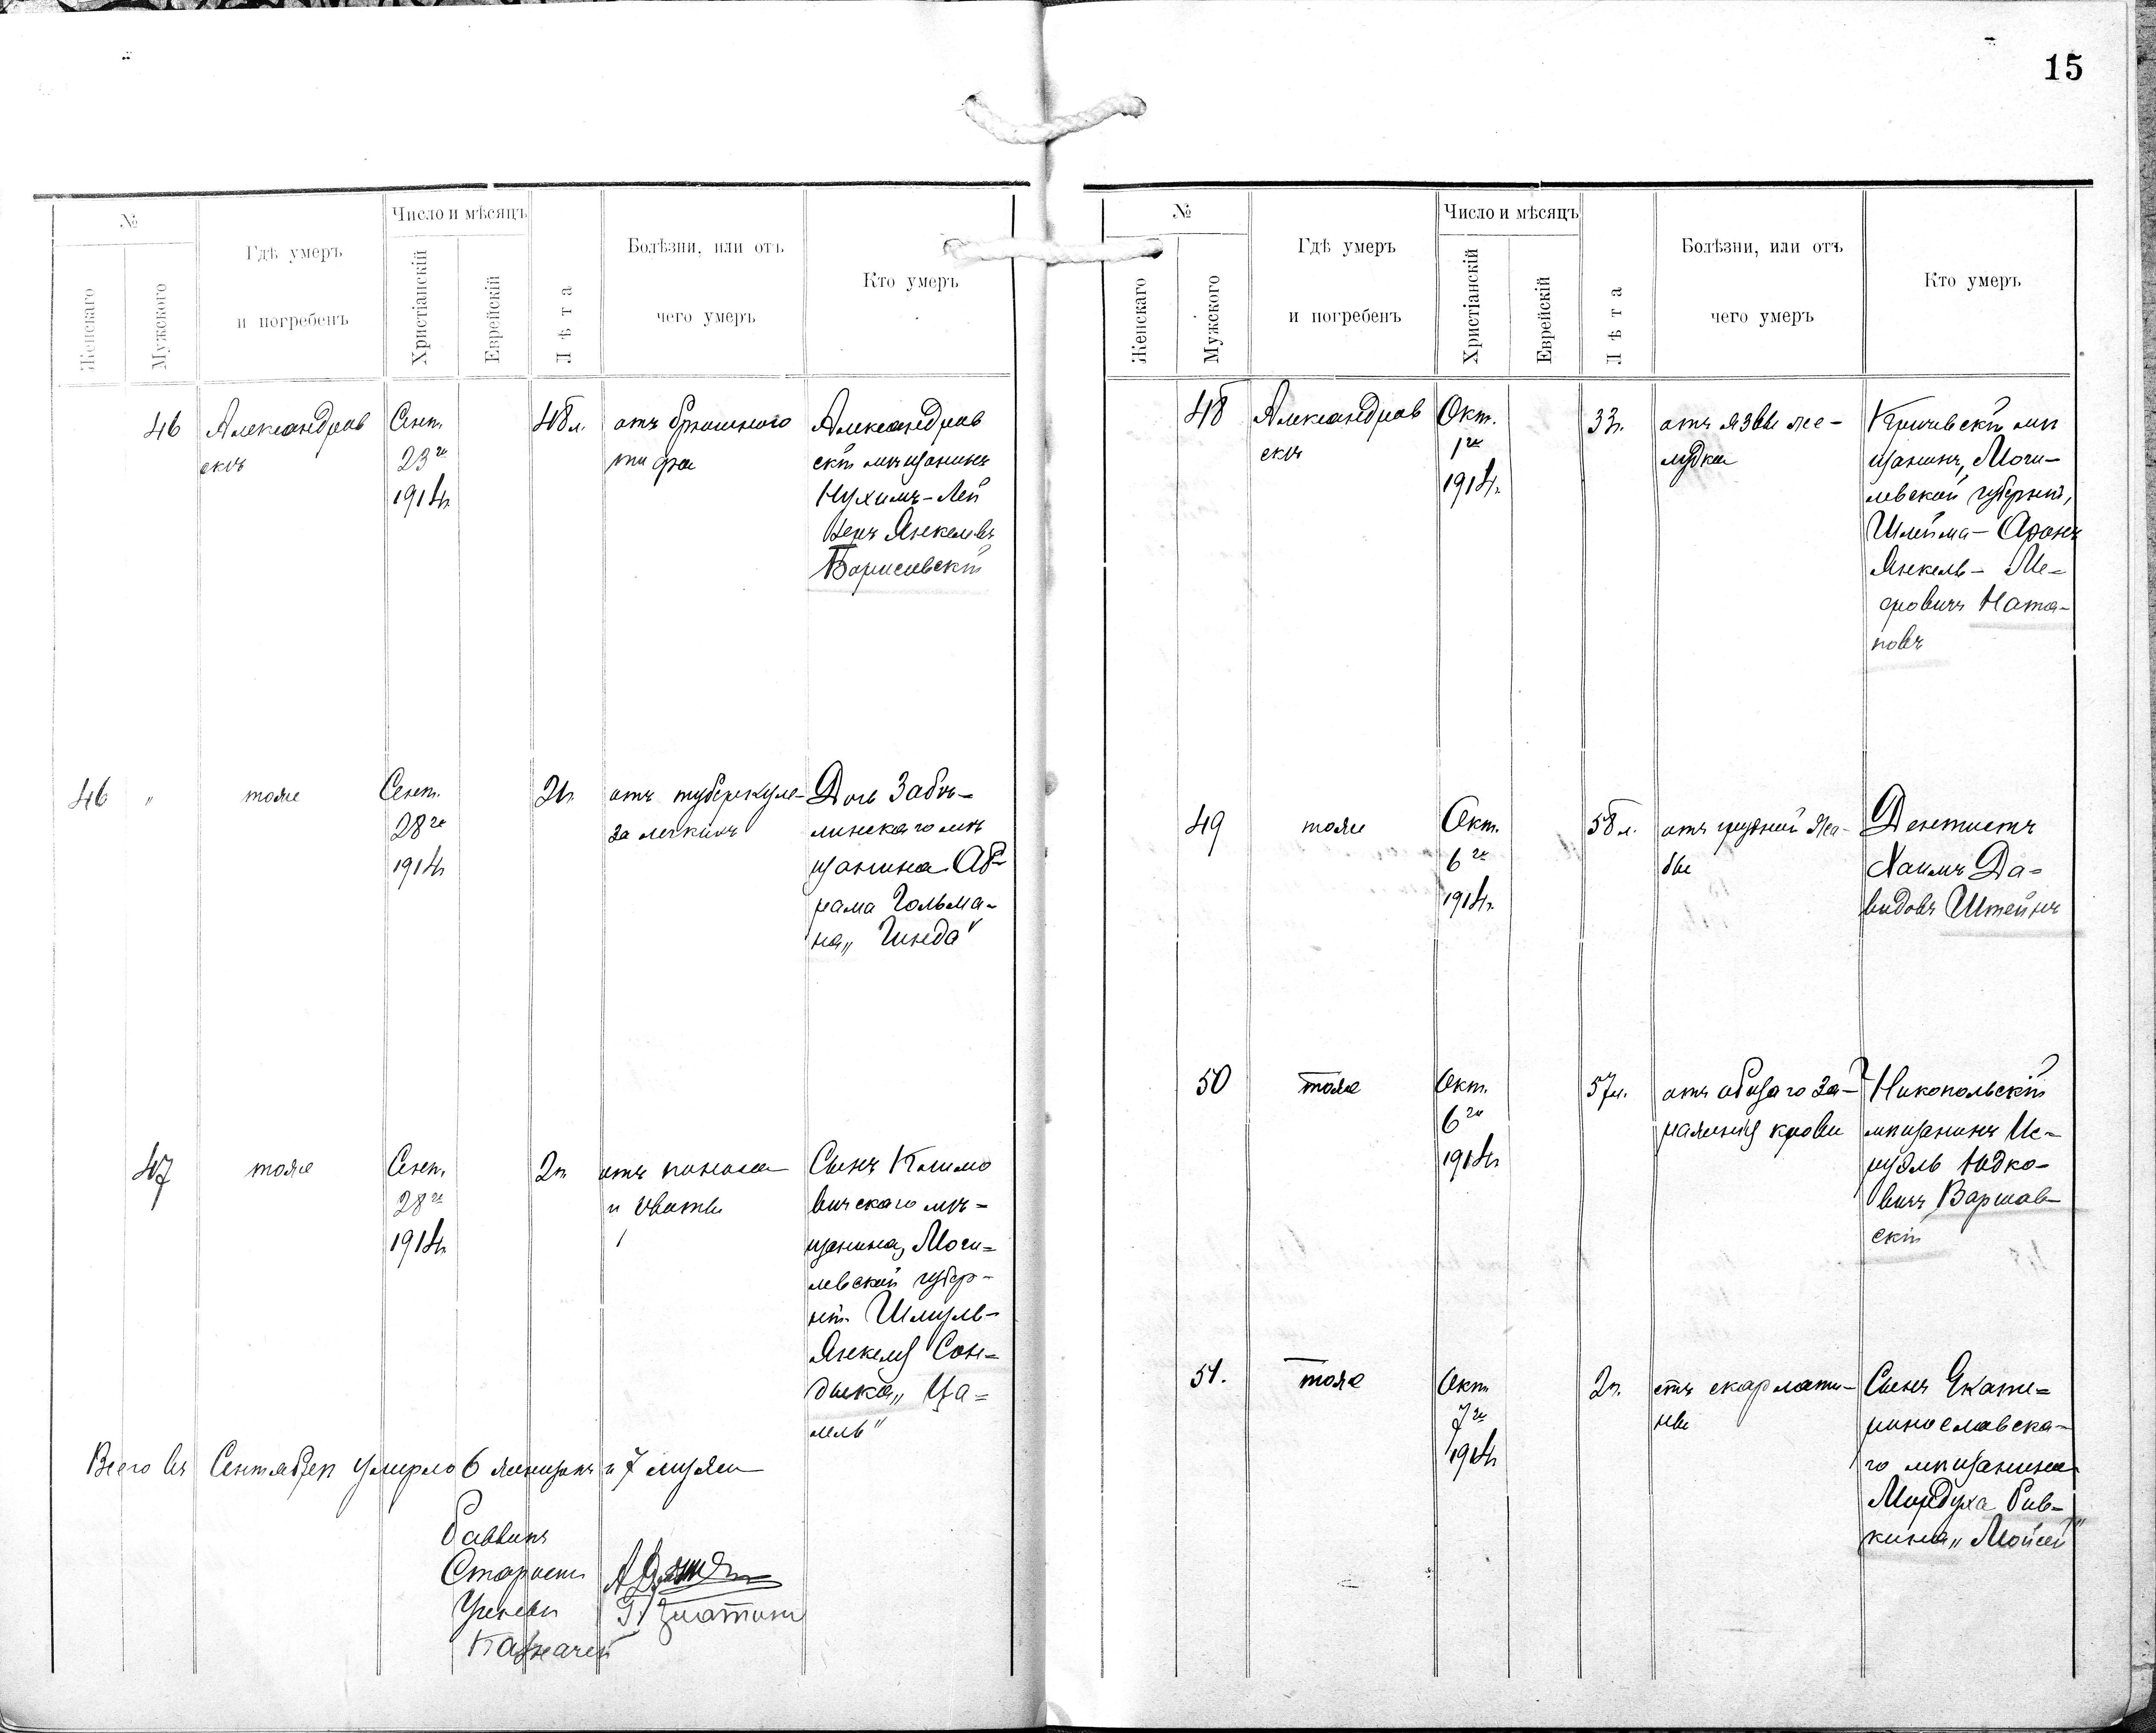 №
Женскаго
Мужского
Гдѣ умеръ
и погребенъ
Число и мѣсяцъ
Христіанскій
Еврейскій
Лѣта
Болѣзни, или отъ
чего умеръ
Кто умеръ
46
Александров
скъ
Сент.
23го
1914г.
48л.
отъ брюшного
тифа
Александров
скій мѣщанинъ
Нухимъ-Лей
Янкелевъ
Борисовскій
46
"
тоже
Сент.
28го
1914г
2г.
отъ туберкуле-
за легкихъ
Дочь Забѣ-
линскаго мѣ
щанина Аб-
рама Гольма-
на „Гинда"
47
тоже
Сент.
28го
1914г
2г.
отъ поноса
и рвоты
Сынъ Климо
вичскаго мѣ-
щанина, Моги-
левской губер-
ніи Шмуль-
Янкеля Сон-
дыка „Ца-
лель"
Всего въ Сентябрѣ умерло 6 женщинъ и 7 мужч
Раввинъ
Старост
Ученый
Казначей
15
№
Женскаго
Мужского
Гдѣ умеръ
и погребенъ
Число и мѣсяцъ
Христіанскій
Еврейскій
Лѣта
Болѣзни, или отъ
чего умеръ
Кто умеръ
48
Александров
скъ
Окт.
1го
1914г.
33г.
отъ язвы же-
лудка
Кричевскій мѣ
щанинъ, Моги-
левской губерніи,
Шлейма-Аронъ
Янкель-Ме-
еровичъ Ната-
новъ
49
тоже
Окт.
6го
1914г.
58л.
отъ грудной жа-
бы
Дентистъ
Хаимъ Да-
видовъ Штейнъ
50
тоже
Окт.
6го
1914г
57л.
отъ общаго за-
раженія крови
Никопольскій
мѣщанинъ Ис-
руэль Юдко-
вичъ Варшав-
скій
51.
тоже
Окт
7го
1914г
2г.
отъ скарлати-
ны
Сынъ Екате-
ринославска-
го мѣщанина
Мордуха Рив-
кина „Мойсей"